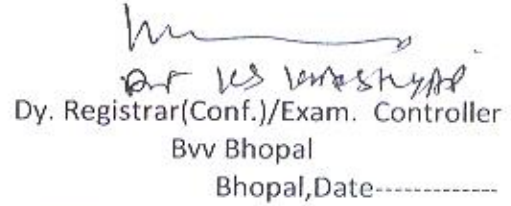 Dr KS
Dy. Registrar(Conf.)/Exam. Controller
Bvv Bhopal
Bhopal,Date-------------